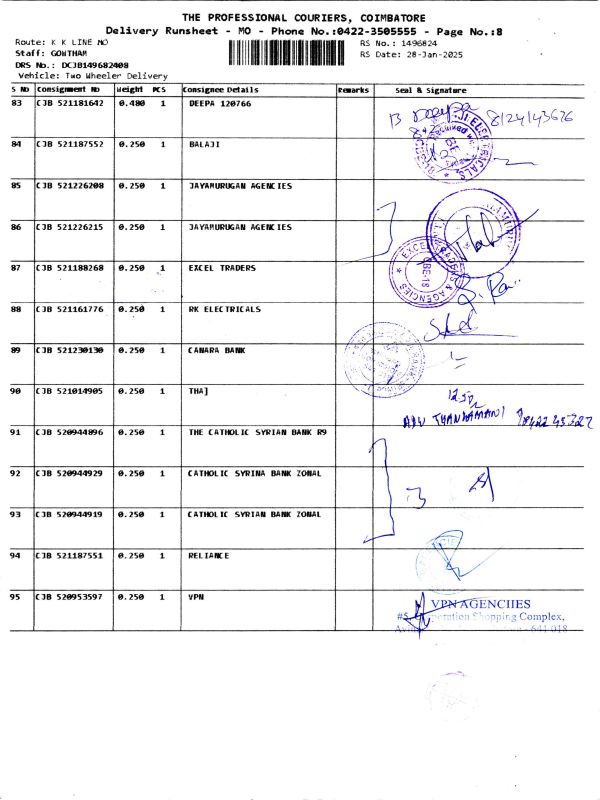 THE PROFESSIONAL COURIERS, COIMBATORE
Delivery Runsheet - MO - Phone No.:0422-3505555 - Page No.:8
Route: K K LINE MO
RS No.: 1496824
Staff: GOWTHAM
RS Date: 28-Jan-2025
DRS No.: DCJB149682408
Vehicle: Two Wheeler Delivery
S NO Consignment No Weight PCS Consignee Details Remarks Seal & Signature
83 CJB 521181642 0.480 1 DEEPA 120766
B Deepa 8124143676
84 CJB 521187552 0.250 1 BALAJI
85 CJB 521226208 0.250 1 JAYAMURUGAN AGENCIES
86 CJB 521226215 0.250 1 JAYAMURUGAN AGENCIES
87 CJB 521188268 0.250 1 EXCEL TRADERS
88 CJB 521161776 0.250 1 RK ELECTRICALS
89 CJB 521230130 0.250 1 CANARA BANK
90 CJB 521014905 0.250 1 THAJ
91 CJB 520944896 0.250 1 THE CATHOLIC SYRIAN BANK R9
92 CJB 520944929 0.250 1 CATHOLIC SYRINA BANK ZONAL
93 CJB 520944919 0.250 1 CATHOLIC SYRIAN BANK ZONAL
94 CJB 521187551 0.250 1 RELIANCE
95 CJB 520953597 0.250 1 VPN
VPN AGENCIIES
Shopping Complex,
641 018